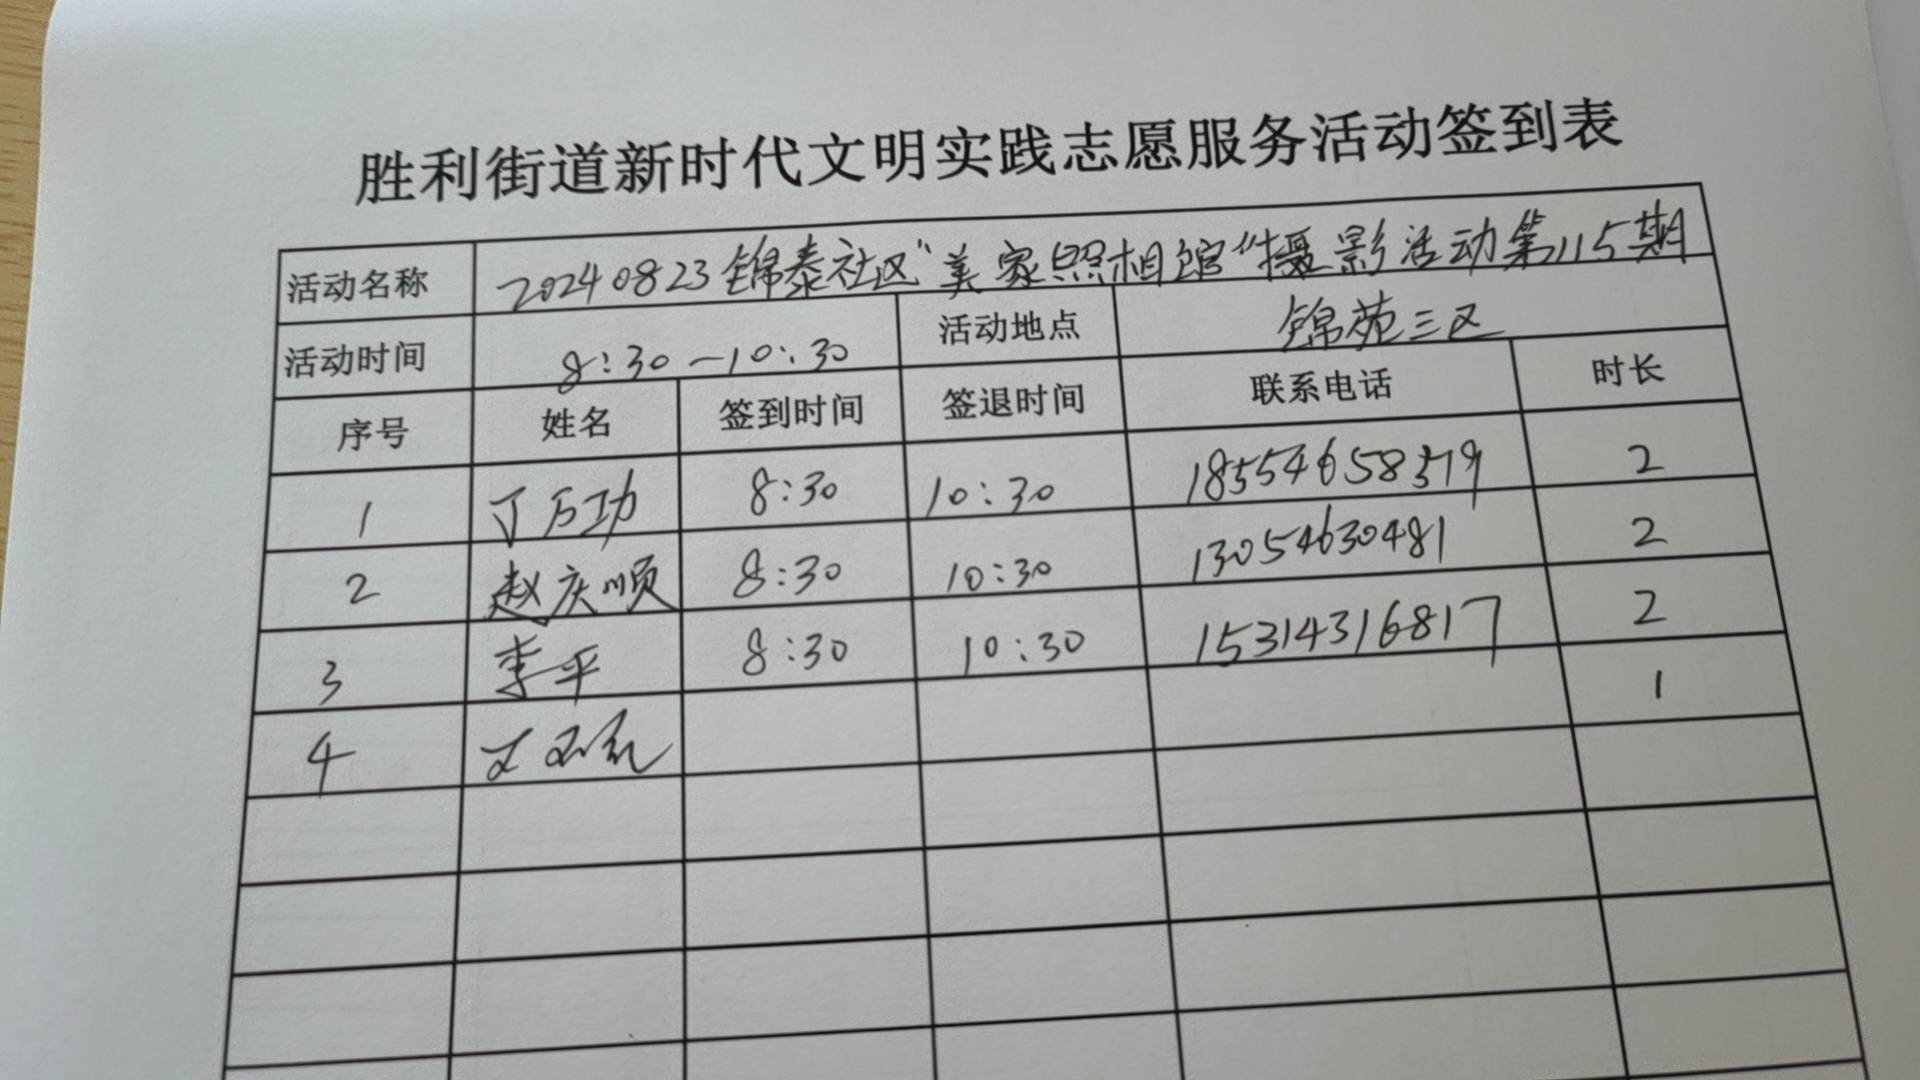 胜利街道新时代文明实践志愿服务活动签到表
活动名称 20240823锦泰社区"美家照相馆"摄影活动第115期
活动时间 8:30—10:30 活动地点 锦苑三区
序号 姓名 签到时间 签退时间 联系电话 时长
1 丁万功 8:30 10:30 18554658379 2
2 赵庆顺 8:30 10:30 13054630481 2
3 李平 8:30 10:30 15314316817 2
4 1